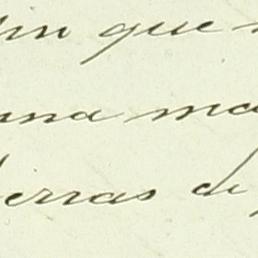 que
una ma
erras de